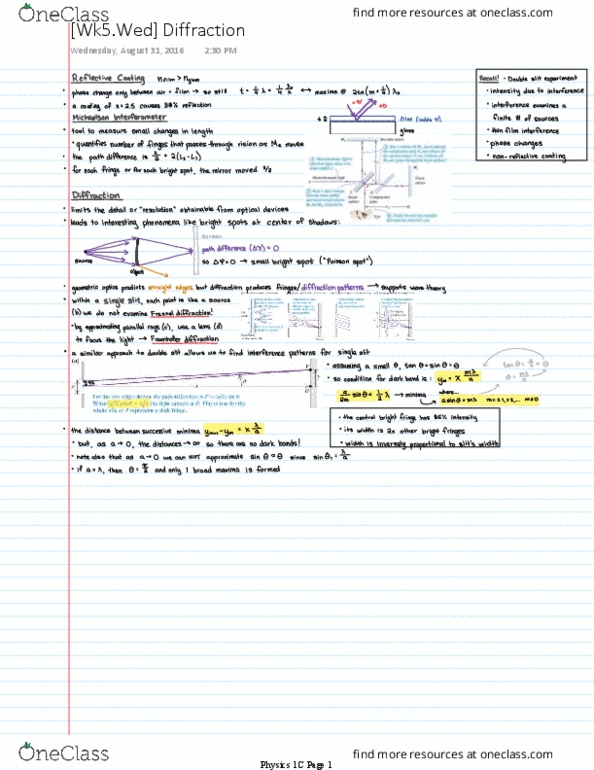 OneClass
find more resources at oneclass.com
[Wk5.Wed] Diffraction
Wednesday, August 31, 2016 2:30 PM
Reflective Coating
• phase change only between air + film → so still
• a coating of n=2.5 causes 38% reflection
Michaelson Interferometer
• tool to measure small changes in length
• quantifies number of fringes that passes through vision as M₂ moves
• the path difference is
• for each fringe or for each bright spot, the mirror moved λ/2
glass
Recall! - Double slit experiment
• intensity due to interference
• interference examines a
finite # of sources
• thin film interference
• phase changes
• non-reflective coating
Diffraction
• limits the detail or "resolution" obtainable from optical devices
• leads to interesting phenomena like bright spots at center of shadows:
screen
source
object
path difference (ΔX) = 0
so Δφ=0 → small bright spot ("Poisson spot")
• geometric optics predicts straight edges but diffraction produces fringes/diffraction patterns → supports wave theory
• within a single slit, each point is like a source
(b) we do not examine Fresnel diffraction!
• by approximating parallel rays (c), use a lens (d)
to focus the light → Fraunhofer diffraction
• a similar approach to double slit allows us to find interference patterns for single slit
• assuming a small θ, tan θ = sin θ = θ
• so condition for dark band is: yₘ = x mλ/a
→ minima
where...
a sin θ = mλ
• the central bright fringe has 85% intensity
• its width is 2x other bright fringes
• width is inversely proportional to slit's width
• the distance between successive minima yₘ₊₁-yₘ = x λ/a
• but, as a → 0, the distances → ∞ so there are no dark bands!
• note also that as a → 0 we can not approximate sin θ ≈ θ since sin θ₁ = λ/a
• if a = λ, then θ = π/2 and only 1 broad maxima is formed
OneClass
find more resources at oneclass.com
Physics 1C Page 1